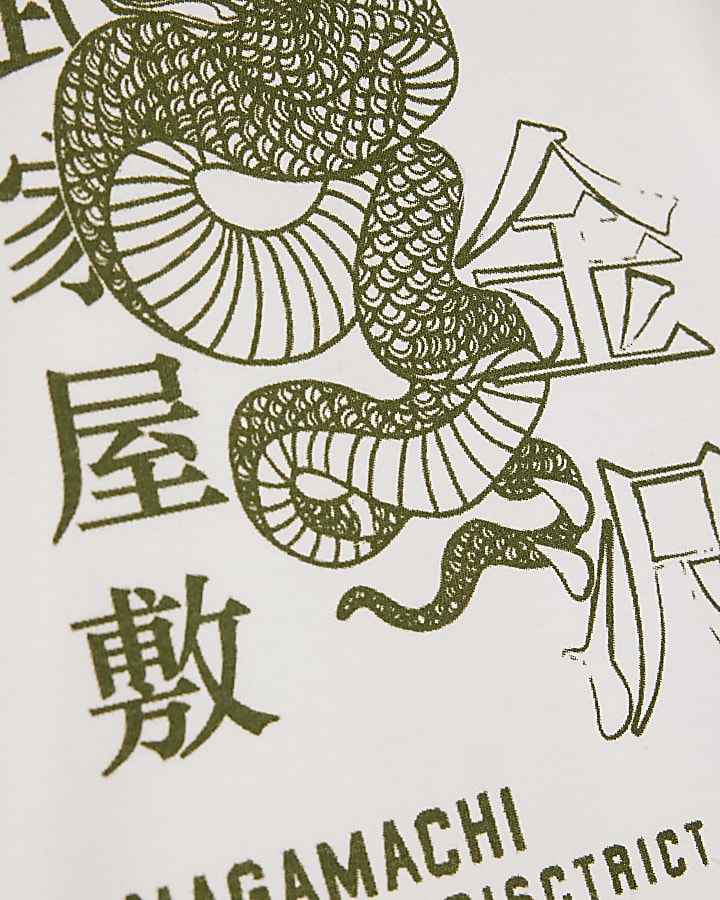 武家屋敷
金沢
NAGAMACHI
DISCTRICT